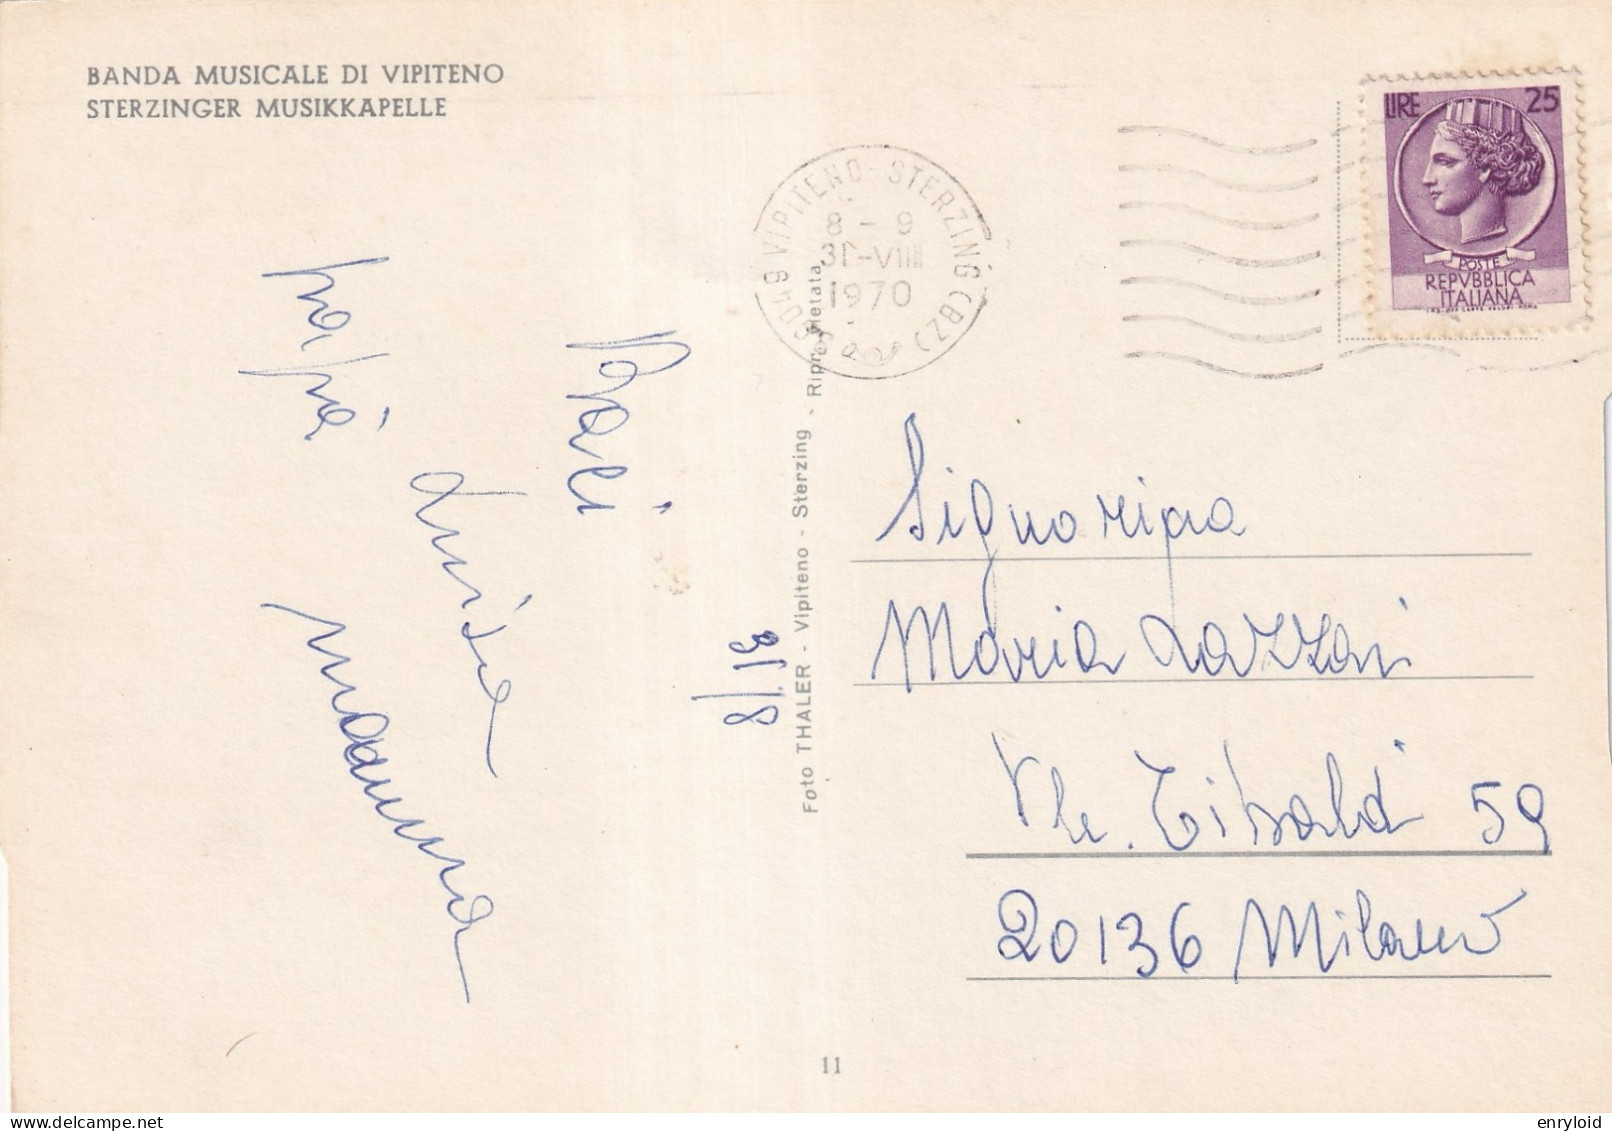 BANDA MUSICALE DI VIPITENO
STERZINGER MUSIKKAPELLE
39049 VIPITENO - STERZING (BZ)
8 - 9
31-VIII
1970
LIRE 25
POSTE
REPVBBLICA
ITALIANA
31/8
Baci
mamma
papà
Foto THALER - Vipiteno - Sterzing - Ripr. vietata
Signorina
Maria Lazzari
Vle. Tibaldi 59
20136 Milano
11
enryloid